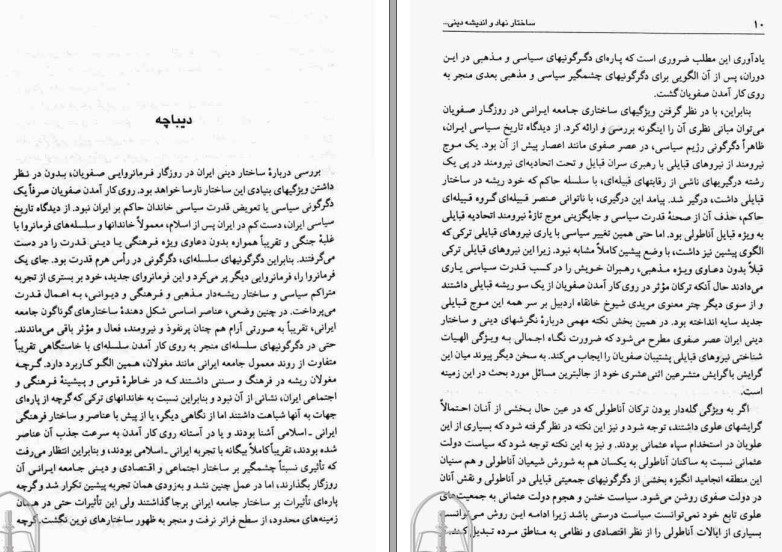 دیباچه
بررسی دربارهٔ ساختار دینی ایران در روزگار فرمانروایی صفویان، بدون در نظر
داشتن ویژگیهای بنیادی این ساختار نارسا خواهد بود. روی کار آمدن صفویان صرفاً یک
دگرگونی سیاسی یا تعویض قدرت سیاسی خاندان حاکم بر ایران نبود. از دیدگاه تاریخ
سیاسی ایران، دست کم در ایران پس از اسلام، معمولاً خاندانها و سلسله‌های فرمانروا با
غلبهٔ جنگی و تقریباً همواره بدون دعاوی ویژه فرهنگی یا دینی قدرت را در دست
می‌گرفتند. بنابراین دگرگونیهای سلسله‌ای، دگرگونی در رأس هرم قدرت بود. جای یک
فرمانروا را، فرمانروایی دیگر پر می‌کرد و این فرمانروای جدید، خود بر بستری از تجربه
متراکم سیاسی و ساختار ریشه‌دار مذهبی و فرهنگی و دیوانی، به اعمال قدرت
می‌پرداخت. در چنین وضعی، عناصر اساسی شکل دهندهٔ ساختارهای گوناگون جامعه
ایرانی، تقریباً به صورتی آرام هم چنان پرنفوذ و نیرومند، فعال و مؤثر باقی می‌ماندند.
حتی در دگرگونیهای سلسله‌ای منجر به روی کار آمدن سلسله‌ای با خاستگاهی تقریباً
متفاوت از روند معمول جامعه ایرانی مانند مغولان، همین الگو کاربرد دارد. گرچه
مغولان ریشه در فرهنگ و سنتی داشتند که در خاطرهٔ قومی و پیشینهٔ فرهنگی و
اجتماعی ایران، نشانی از آن نبود و بنابراین نسبت به خاندانهای ترکی که گرچه از پاره‌ای
جهات به آنها شباهت داشتند اما از نگاهی دیگر، یا از پیش با عناصر و ساختار فرهنگی
ایرانی ـ اسلامی آشنا بودند و یا در آستانه روی کار آمدن به سرعت جذب آن عناصر
شده بودند، تقریباً کاملاً بیگانه با تجربه ایرانی ـ اسلامی بودند، و بنابراین انتظار می‌رفت
که تأثیری نسبتاً چشمگیر بر ساختار اجتماعی و اقتصادی و دینی جامعه ایرانی آن
روزگار بگذارند، اما در عمل چنین نشد و به‌زودی همان تجربه پیشین تکرار شد و گرچه
پاره‌ای تأثیرات بر ساختار جامعه ایرانی برجا گذاشتند ولی این تأثیرات حتی در همان
زمینه‌های محدود، از سطح فراتر نرفت و منجر به ظهور ساختارهای نوین نگشت. گرچه
۱۰ ساختار نهاد و اندیشه دینی...
یادآوری این مطلب ضروری است که پاره‌ای دگرگونیهای سیاسی و مذهبی در این
دوران، پس از آن الگویی برای دگرگونیهای چشمگیر سیاسی و مذهبی بعدی منجر به
روی کار آمدن صفویان گشت.
بنابراین، با در نظر گرفتن ویژگیهای ساختاری جامعه ایرانی در روزگار صفویان
می‌توان مبانی نظری آن را اینگونه بررسی و ارائه کرد. از دیدگاه تاریخ سیاسی ایران،
ظاهراً دگرگونی رژیم سیاسی، در عصر صفوی مانند اعصار پیش از آن بود. یک موج
نیرومند از نیروهای قبایلی با رهبری سران قبایل و تحت اتحادیه‌ای نیرومند در پی یک
رشته درگیریهای ناشی از رقابتهای قبیله‌ای، با سلسله حاکم که خود ریشه در ساختار
قبایلی داشت، درگیر شد. پیامد این درگیری، با ناتوانی عنصر قبیله‌ای گروه قبیله‌ای
حاکم، حذف آن از صحنهٔ قدرت سیاسی و جایگزینی موج تازهٔ نیرومند اتحادیه قبایلی
به ویژه قبایل آناطولی بود. اما حتی همین تغییر سیاسی با یاری نیروهای قبایلی ترکی که
الگوی پیشین نیز داشت، با وضع پیشین کاملاً مشابه نبود. زیرا این نیروهای قبایلی ترکی
قبلاً بدون دعاوی ویژه مذهبی، رهبران خویش را در کسب قدرت سیاسی یاری
می‌دادند حال آنکه ترکان مؤثر در روی کار آمدن صفویان از یک سو ریشه قبایلی داشتند
و از سوی دیگر چتر معنوی مریدی شیوخ خانقاه اردبیل بر سر همه این موج قبایلی
جدید سایه انداخته بود. در همین بخش نکته مهمی دربارهٔ نگرشهای دینی و ساختار
دینی ایران عصر صفوی مطرح می‌شود که ضرورت نگاه اجمالی به ویژگی الهیات
شناختی نیروهای قبایلی پشتیبان صفویان را ایجاب می‌کند. به سخن دیگر پیوند میان این
گرایش باگرایش متشرعین اثنی‌عشری خود از جالبترین مسائل مورد بحث در این زمینه
است.
اگر به ویژگی گله‌دار بودن ترکان آناطولی که در عین حال بخشی از آنان احتمالاً
گرایشهای علوی داشتند، توجه شود و نیز این نکته در نظر گرفته شود که بسیاری از این
علویان در استخدام سپاه عثمانی بودند. و نیز به این نکته توجه شود که سیاست دولت
عثمانی نسبت به ساکنان آناطولی به یکسان هم به شورش شیعیان آناطولی و هم سنیان
این منطقه انجامید انگیزه بخشی از دگرگونیهای جمعیتی قبایلی در آناطولی و نقش آنان
در دولت صفوی روشن می‌شود. سیاست خشن و هجوم دولت عثمانی به جمعیت‌های
علوی تابع خود نمی‌توانست سیاست درستی باشد زیرا ادامه این روش می‌توانست
بسیاری از ایالات آناطولی را از نظر اقتصادی و نظامی به مناطق مرده تبدیل کند.